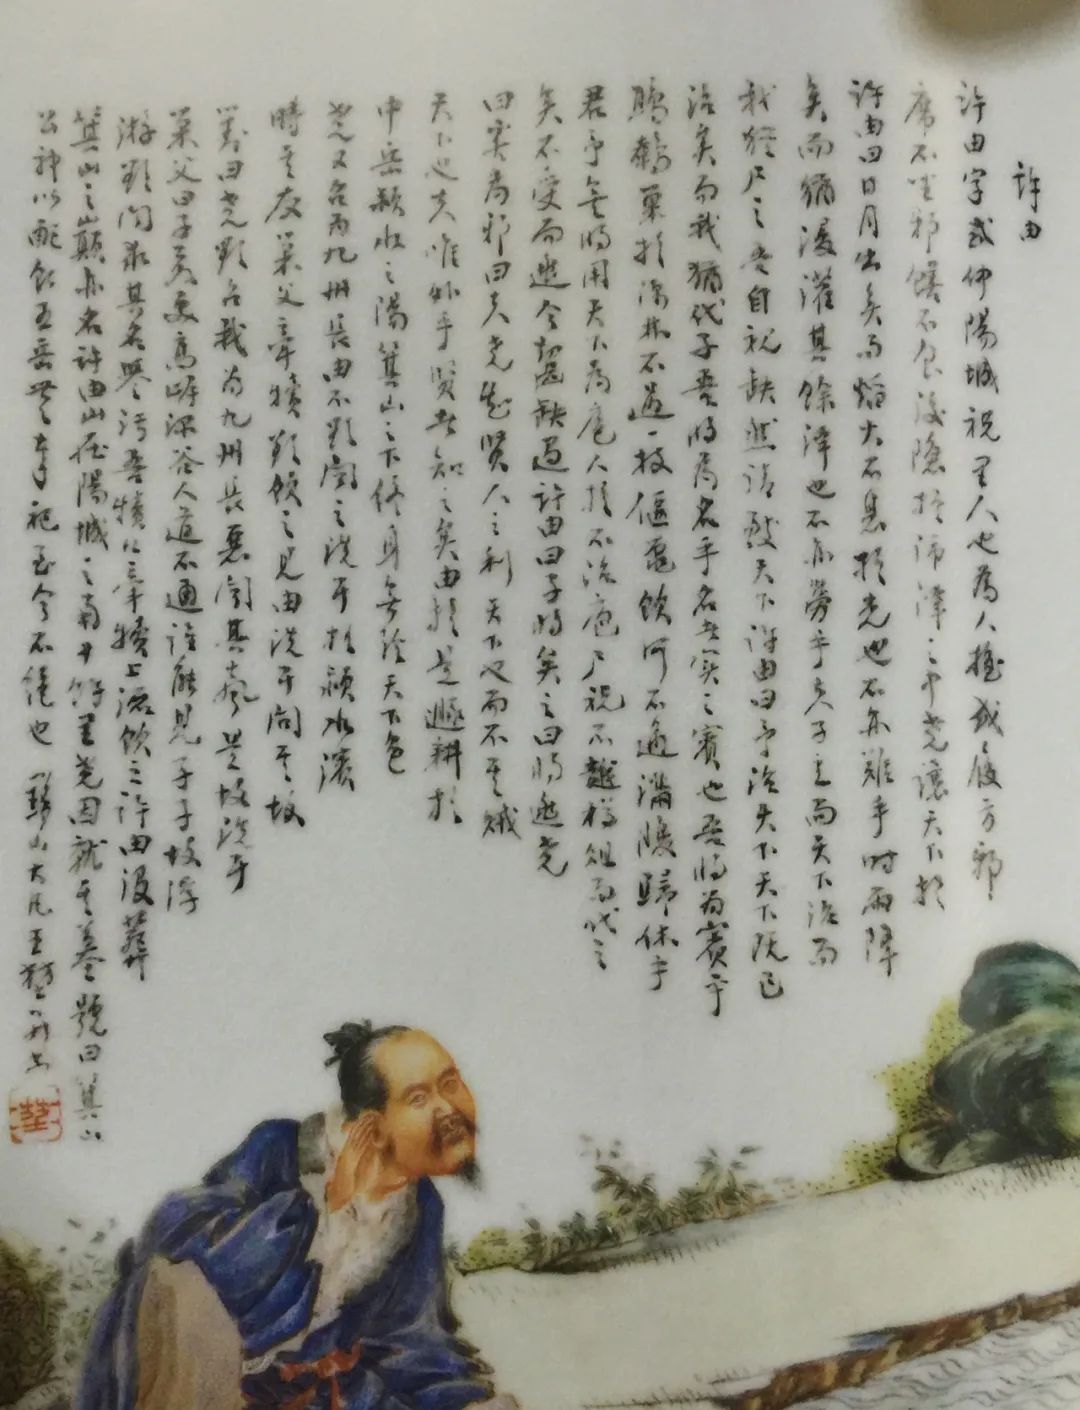 許由
許由字武仲陽城槐里人也為人據義履方邪
席不坐邪饍不食後隱於沛澤之中堯讓天下於
許由曰日月出矣而爝火不息於光也不亦難乎時雨降
矣而猶浸灌其餘澤也不亦勞乎夫子立而天下治而
我猶尸之吾自視缺然請致天下許由曰子治天下天下既已
治矣而我猶代子吾將為名乎名者實之賓也吾將為賓乎
鷦鷯巢於深林不過一枝偃鼠飲河不過滿腹歸休乎
君予無所用天下為庖人於不治庖尸祝不越樽俎而代之
矣不受而逃去齧缺遇許由曰子將奚之曰將逃堯
曰奚為邪曰夫堯知賢人之利天下也而不其賊
天下也夫唯外乎賢者知之矣由於是遯耕於
中岳潁水之陽箕山之下終身無經天下色
堯又召為九州長由不欲聞之洗耳於潁水濱
時其友巢父牽犢欲飲之見由洗耳問其故
對曰堯欲召我為九州長惡聞其聲是故洗耳
巢父曰子若處高岸深谷人道不通誰能見子子故浮
游欲聞求其名譽污吾犢口牽犢上流飲之許由沒葬
箕山之巔亦名許由山在陽城之南十餘里堯因就其墓號曰箕山
公神以配食五岳世世奉祀至今不絕也 黟山